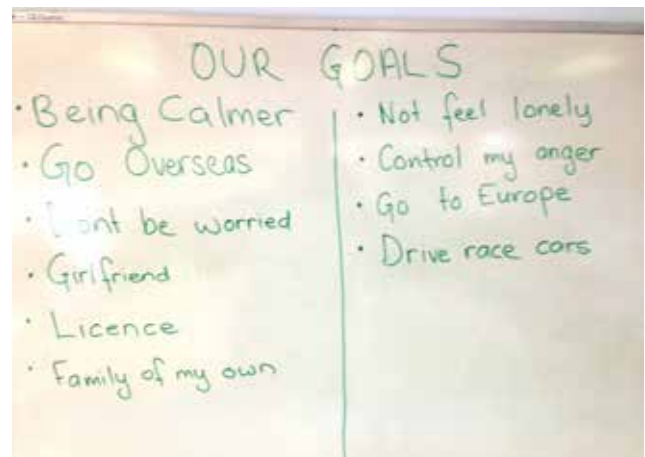 OUR GOALS
• Being Calmer
• Go Overseas
• Dont be worried
• Girlfriend
• Licence
• Family of my own
• Not feel lonely
• Control my anger
• Go to Europe
• Drive race cars